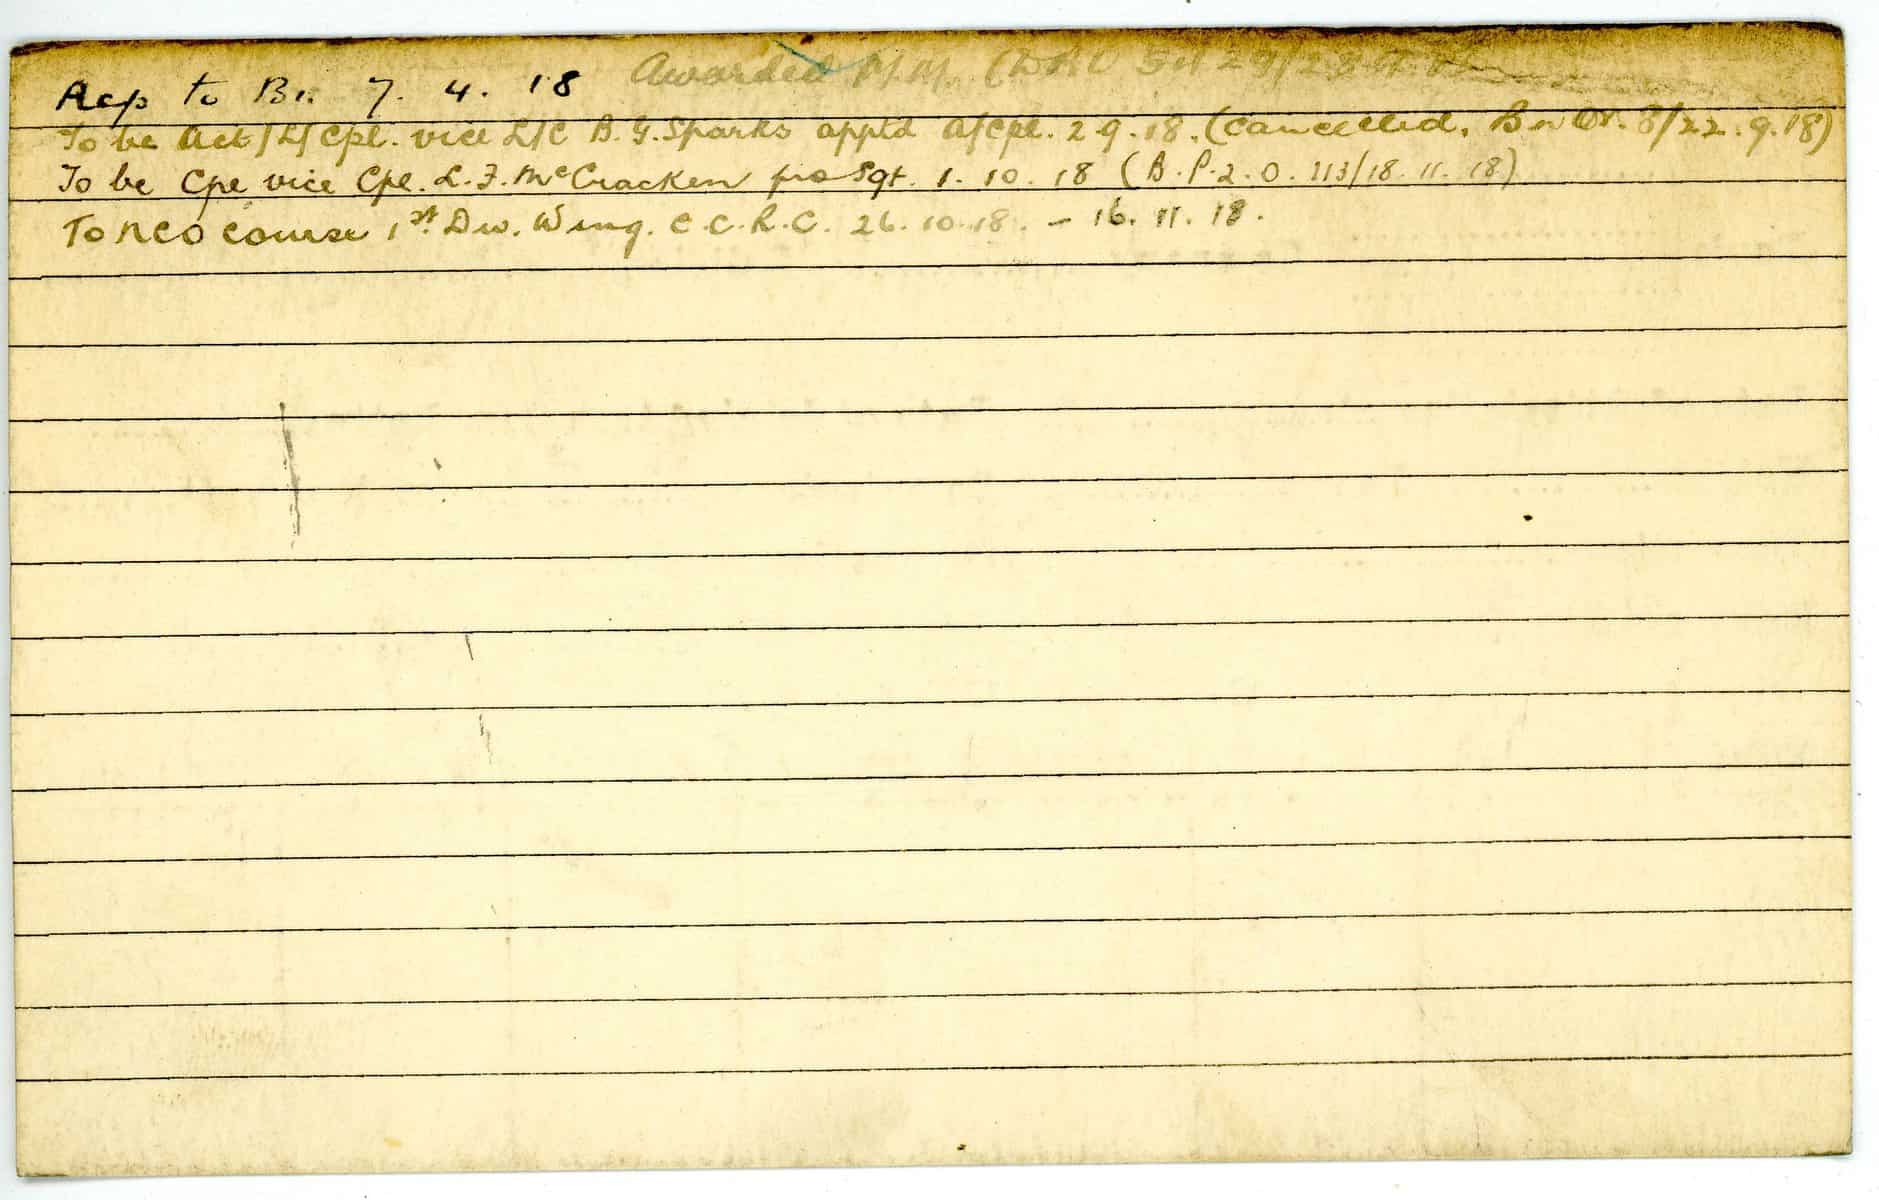 Rep to Bn. 7. 4. 18 Awarded M.M. (DRO
To be Act/L/Cpl. vice L/C B.G. Sparks apptd A/Cpl. 2.9.18. (Cancelled, Bn Or. 8/22.9.18)
To be Cpl vice Cpl. L.F. McCracken pro Sgt. 1.10.18 (B.P.2.O. 113/18.11.18)
To NCO course 1st Div. Wing. C.C.R.C. 26.10.18. - 16.11.18.